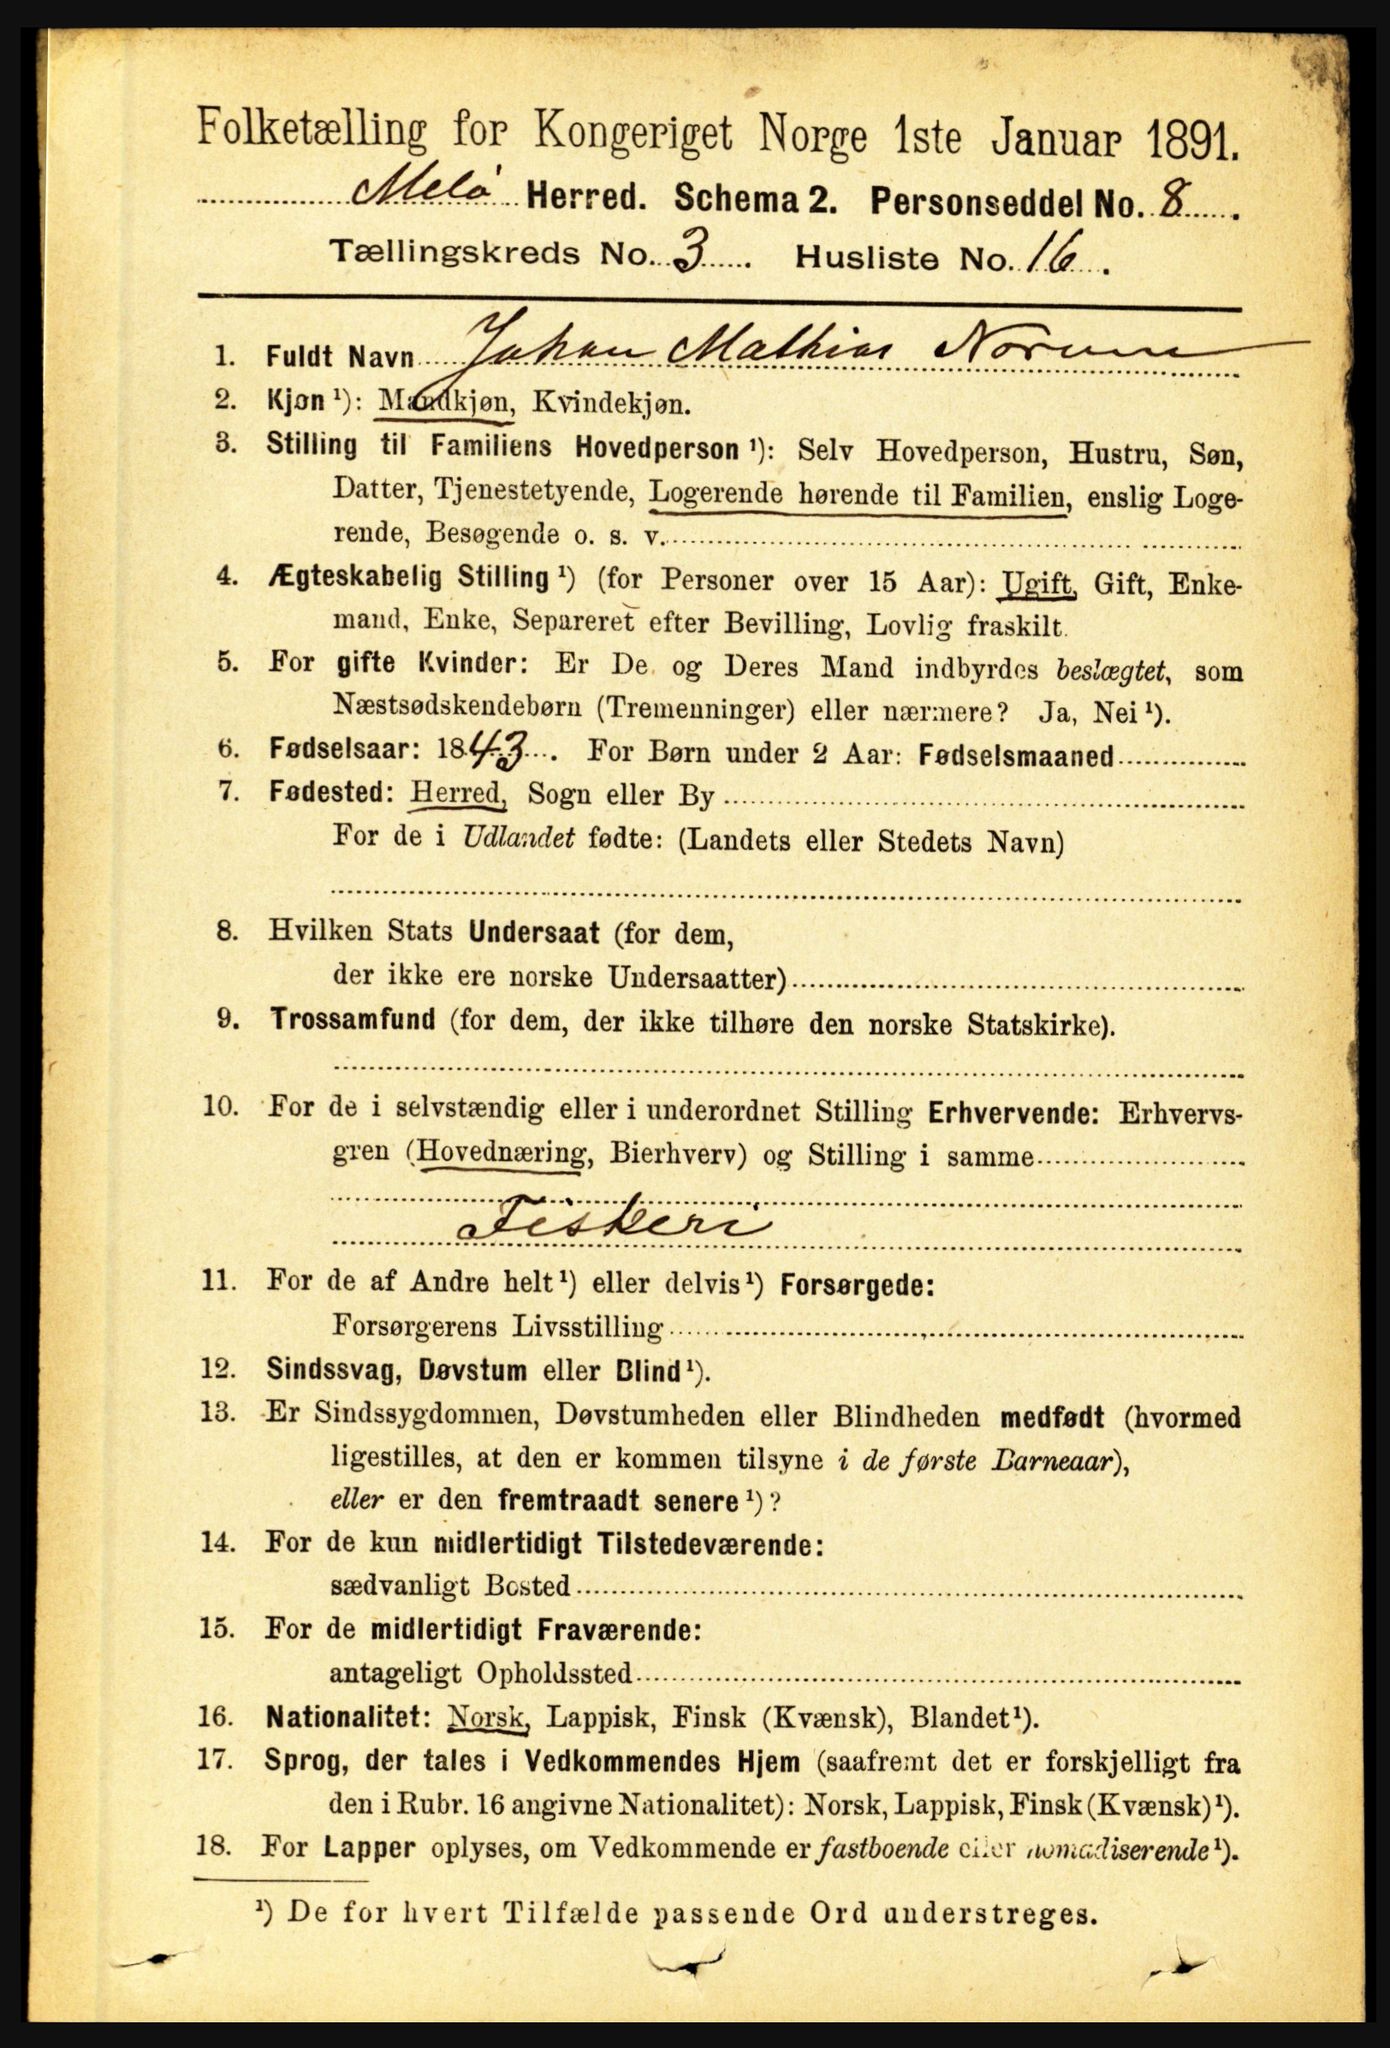 Folketælling for Kongeriget Norge 1ste Januar 1891.
Melö Herred. Schema 2. Personseddel No. 8.
Tællingskreds No. 3. Husliste No. 16.
1. Fuldt Navn Johan Mathias Norum
2. Kjøn ¹): Mandkjøn, Kvindekjøn.
3. Stilling til Familiens Hovedperson ¹): Selv Hovedperson, Hustru, Søn,
Datter, Tjenestetyende, Logerende hørende til Familien, enslig Loge-
rende, Besøgende o. s. v.
4. Ægteskabelig Stilling ¹) (for Personer over 15 Aar): Ugift, Gift, Enke-
mand, Enke, Separeret efter Bevilling, Lovlig fraskilt.
5. For gifte Kvinder: Er De og Deres Mand indbyrdes beslægtet, som
Næstsødskendebørn (Tremenninger) eller nærmere? Ja, Nei ¹).
6. Fødselsaar: 1843. For Børn under 2 Aar: Fødselsmaaned
7. Fødested: Herred, Sogn eller By
For de i Udlandet fødte: (Landets eller Stedets Navn)
8. Hvilken Stats Undersaat (for dem,
der ikke ere norske Undersaatter)
9. Trossamfund (for dem, der ikke tilhøre den norske Statskirke).
10. For de i selvstændig eller i underordnet Stilling Erhvervende: Erhvervs-
gren (Hovednæring, Bierhverv) og Stilling i samme
Fiskeri
11. For de af Andre helt ¹) eller delvis ¹) Forsørgede:
Forsørgerens Livsstilling
12. Sindssvag, Døvstum eller Blind ¹).
13. Er Sindssygdommen, Døvstumheden eller Blindheden medfødt (hvormed
ligestilles, at den er kommen tilsyne i de første Barneaar),
eller er den fremtraadt senere ¹)?
14. For de kun midlertidigt Tilstedeværende:
sædvanligt Bosted
15. For de midlertidigt Fraværende:
antageligt Opholdssted
16. Nationalitet: Norsk, Lappisk, Finsk (Kvænsk), Blandet ¹).
17. Sprog, der tales i Vedkommendes Hjem (saafremt det er forskjelligt fra
den i Rubr. 16 angivne Nationalitet): Norsk, Lappisk, Finsk (Kvænsk) ¹).
18. For Lapper oplyses, om Vedkommende er fastboende eller nomadiserende ¹).
¹) De for hvert Tilfælde passende Ord understreges.